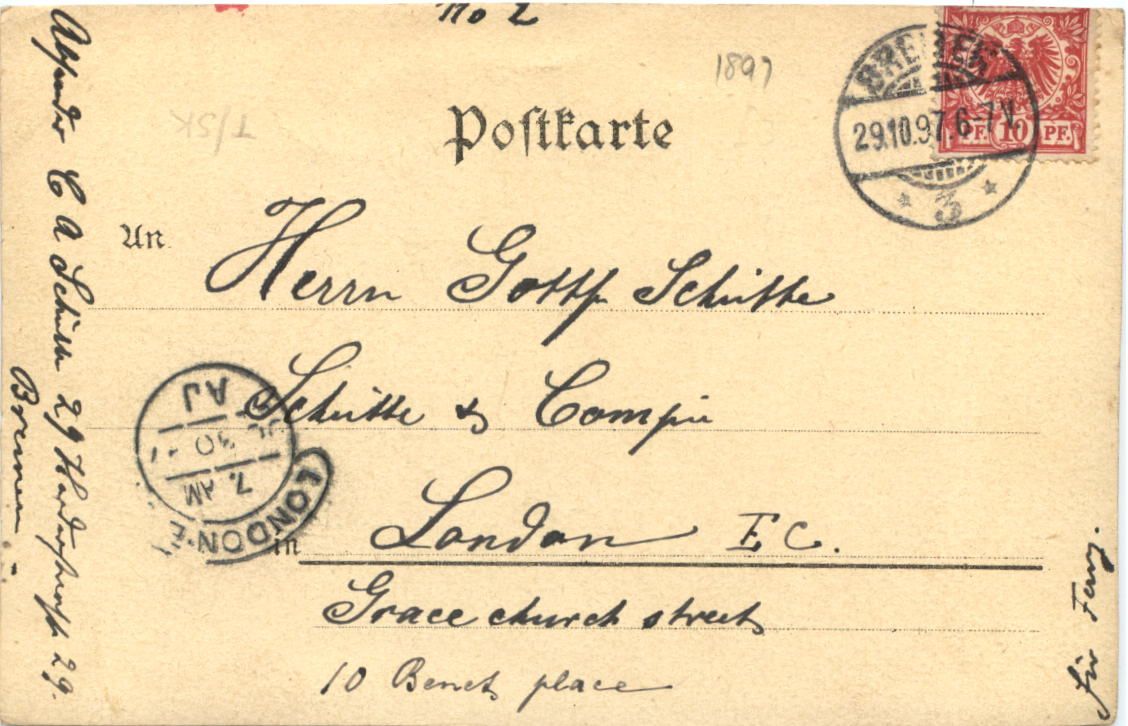 No 2
1897
Postkarte
BREMEN
29.10.97. 6-7 V.
* 3 *
10 PF.
T/SK
An
Herrn Gottf Schütte
Schütte & Compie
in London E C.
Grace church street
10 Benet place
LONDON. E.
7. AM
30
AJ
Absender C A Schütte 29
29.
Bremen
für